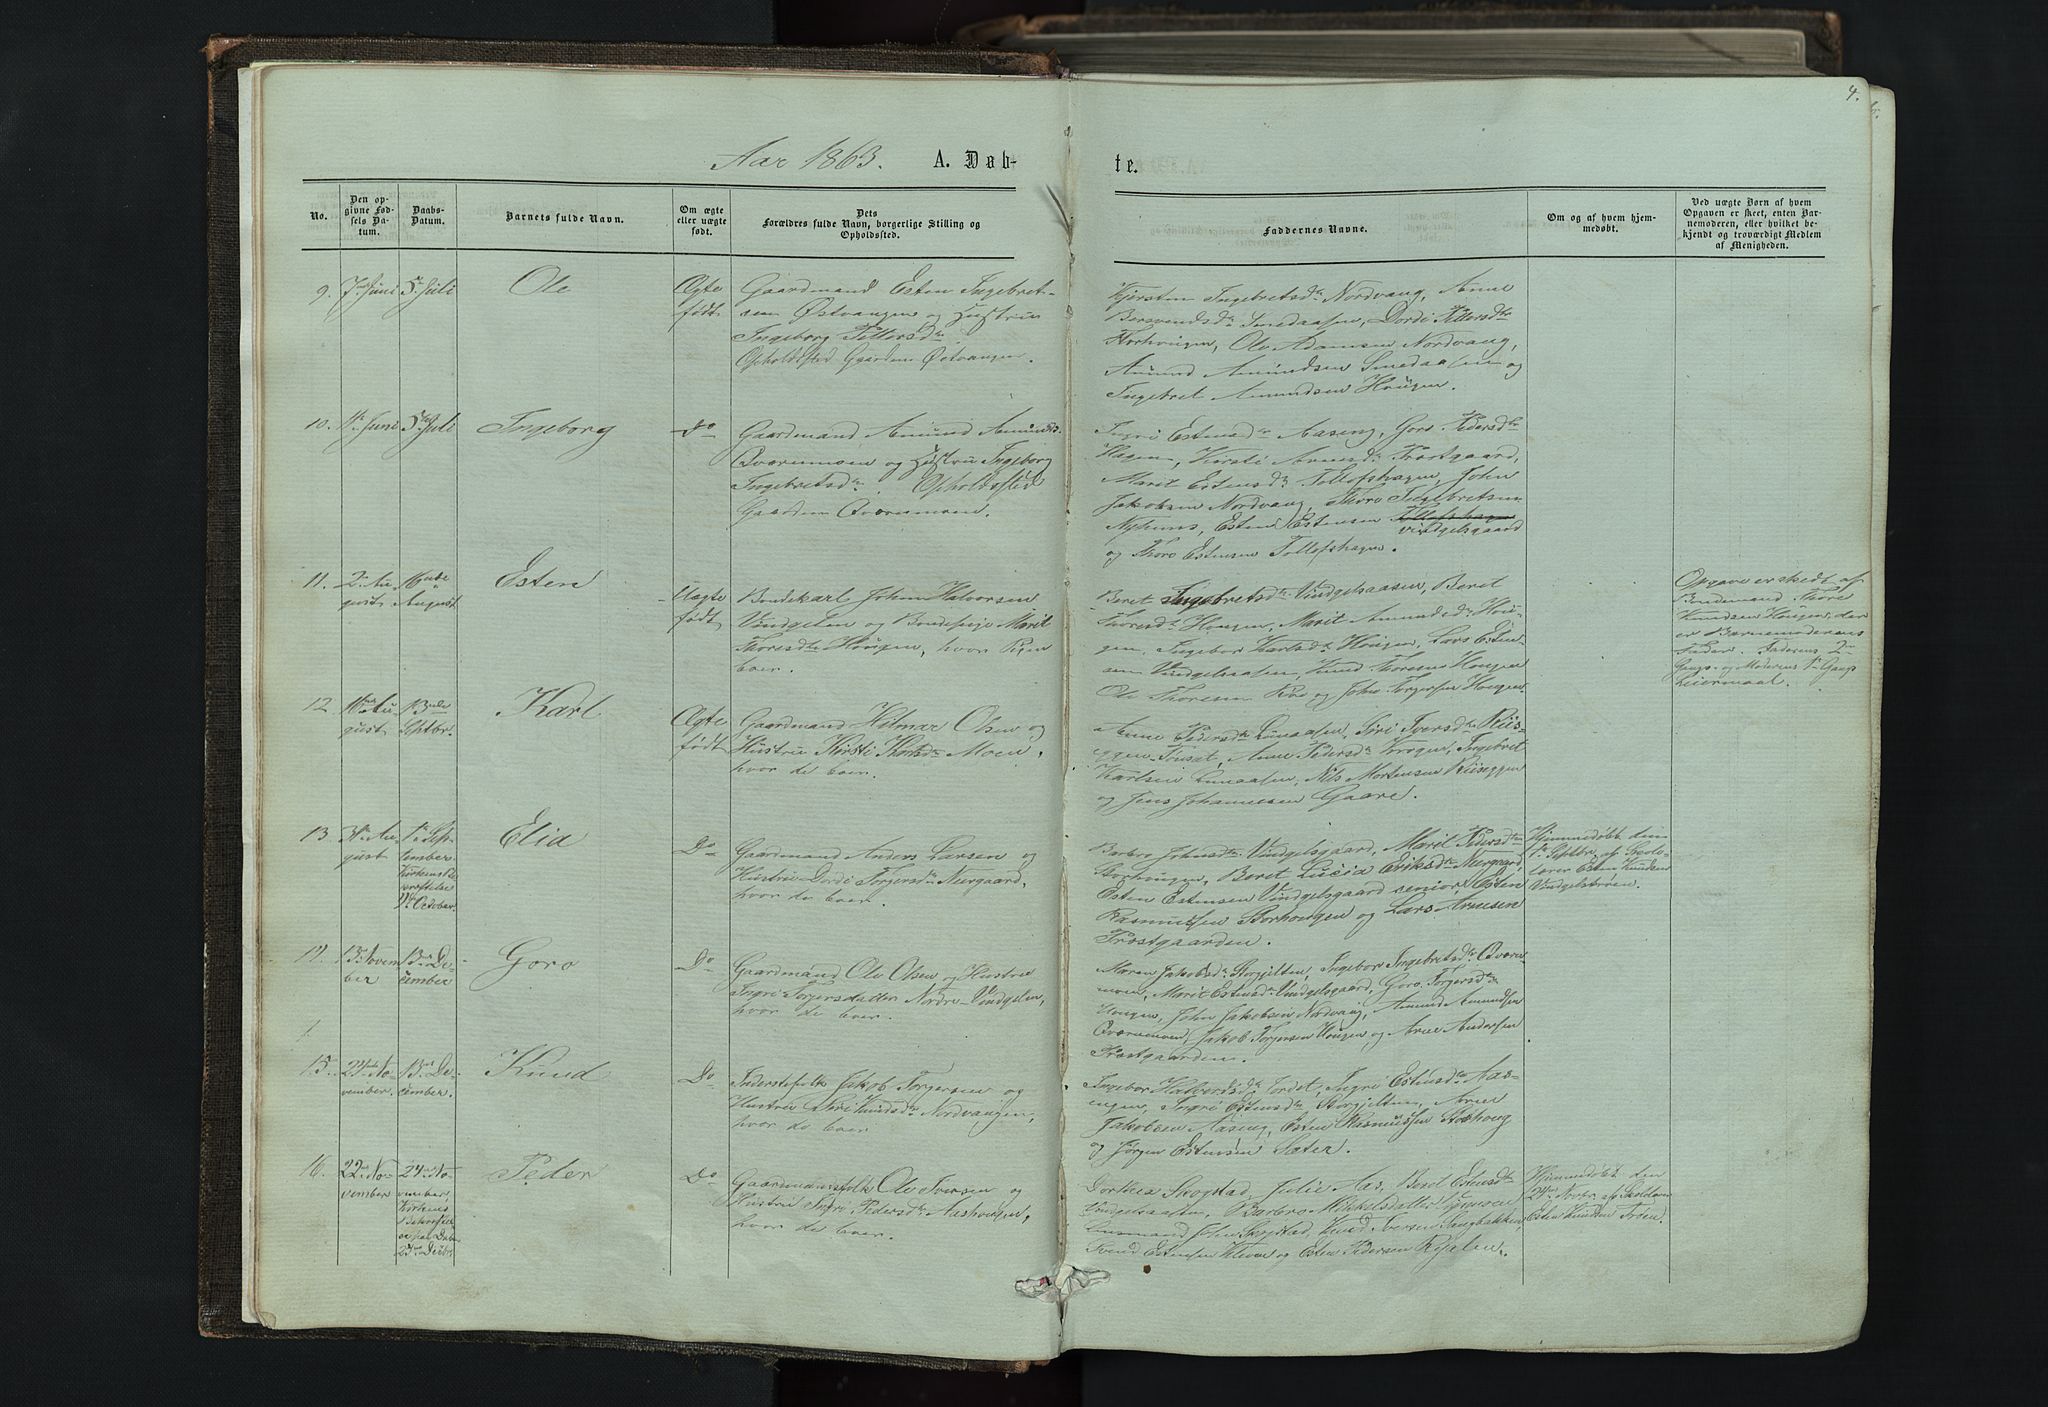 4.
Aar 1863. A. Døb-
te.
No.
Den op-
givne Fød-
sels Da-
tum.
Daabs-
Datum.
Barnets fulde Navn.
Om ægte
eller uægte
født.
Dets
Forældres fulde Navn, borgerlige Stilling og
Opholdssted.
Faddernes Navne.
Om og af hvem hjem-
medøbt.
Ved uægte Børn af hvem
Opgaven er skeet, enten Bar-
nemoderen, eller hvilket be-
kjendt og troværdigt Medlem
af Menigheden.
9. 7de Juni 5. Juli Ole
Ægte
født
Gaardmand Esten Ingebret-
sen Østvangen og Hustru
Ingeborg Pettersdtr
Opholdssted Gaarden Østvangen.
Kjersten Ingebretsdtr Nordvang, Anne
Bersvendsdtr Smedaasen, Dordi
Storhougen, Ole Adamsen Nordvang,
Amund Amundsen Smedaasen og
Ingebret Amundsen Hougen.
10. Juni 5te Juli Ingeborg Do
Gaardmand Amund Amunds.
Qværnmoen og Hustru Ingeborg
Ingebretsdtr. Opholdssted
Gaarden Qværnmoen.
Ingri Estensdtr Aaseng, Goro Pedersdtr
Hagen, Kirsti Arnesdtr Trøstgaard,
Marit Estensdtr Tollofshagen, John
Jakobsen Nordvang, Thore Ingebretsen
Nyhuus, Esten Estensen Tollofshagen
Vindgelsgaard
og Thore Estensen Tollofshagen.
11. 2den Au-
gust 16de
August Esten
Uægte
født
Bondekarl John Halvorsen
Vindgelen og Bondepige Marit
Thoresdtr Hougen, hvor Pigen
boer.
Beret Ingebretsdtr Vindgelsaasen, Beret
Hougen, Marit Amundsdtr Hou-
gen, Ingebor Karlsdtr Hougen, Lars Esten-
sen Vindgelsaasen, Knud Thoresen Hougen
Ole Thoresen og John Torgersen Hougen
Opgave er skedt af
Bondemand Thore
Knudsen Hougen, der
er Barnemoderens
Fader. Faderens 2den
Gangs- og Moderens 1ste Gangs
Leiermaal.
12. Au-
gust 13de
Septbr. Karl
Ægte
født
Gaardmand Hilmar Olsen og
Hustru Kirsti Karlsdtr Moen,
hvor de boer.
Anne Pedersdtr Lunaasen, Siri Iversdtr
Tønset, Anne Pedersdtr Krogen, Ingebret
Karlsen Lunaasen, Nils Mortensen
og Jens Johannesen Gaare.
13. Au-
gust 1ste Sep-
tember
Kirkens Be-
kræftelse
October. Elia Do
Gaardmand Anders Larsen og
Hustru Dordi Torgersdtr Neergaard,
hvor de boer.
Barbro Johnsdtr Vindgelsgaard, Marit Pedersdtr
Storhougen, Beret Lucia Eriksdtr Neergaard,
Esten Estensen Vindgelsgaard senior, Esten
Rasmussen Storhougen og Lars Arnesen
Trøstgaarden.
Hjemmedøbt den
1ste Septbr. af Skole-
lærer Esten Knudsen
Vindgelstrøen.
14. Novem-
ber 13de De-
cember Goro Do
Gaardmand Ole Olsen og Hustru
Ingri Torgersdatter Nordre Vindgelen,
hvor de boer.
Maren Jakobsdtr Storgjelten, Ingebor Ingebretsdtr Qværn-
moen, Marit Estensdtr Vindgelsgaard, Goro Torgersdtr
Hougen, John Jakobsen Nordvang, Amund Amundsen
Qværnmoen, Jakob Torgersen Hougen og Arne Andersen
Trøstgaarden.
15. No-
vember. 13de De-
cember. Knud Do
Inderstefolk Jakob Torgersen og
Hustru Siri Knudsdtr Nordvangen,
hvor de boer.
Ingebor Halvorsdtr Jordet, Ingri Estensdtr Aas-
engen, Ingri Estensdtr Storgjelten, Arne
Jakobsen Aaseng, Esten Rasmussen Storhoug
og Jørgen Estensen Sæter.
16. 22de No-
vember 24de No-
vember,
Kirkens
Bekræftelse
27de Decbr. Peder Do
Gaardmandsfolk Ole Iversen og
Hustru Ingri Pedersdtr Aashougen,
hvor de boer.
Dorthea Skogstad, Julie Aas, Beret Estensdtr
Vindgelsaasen, Barbro Mikkelsdatter
John Skogstad, Knud Iversen
Svend Estensen Kleven og Esten Pedersen
Hjemmedøbt den
24de Novbr. af Skolelærer
Esten Knudsen Trøen.